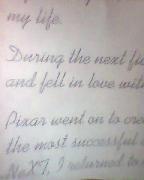 my life.
During the next fi
and fell in love wit
Pixar went on to cre
the most successful
NeXT, I returned to